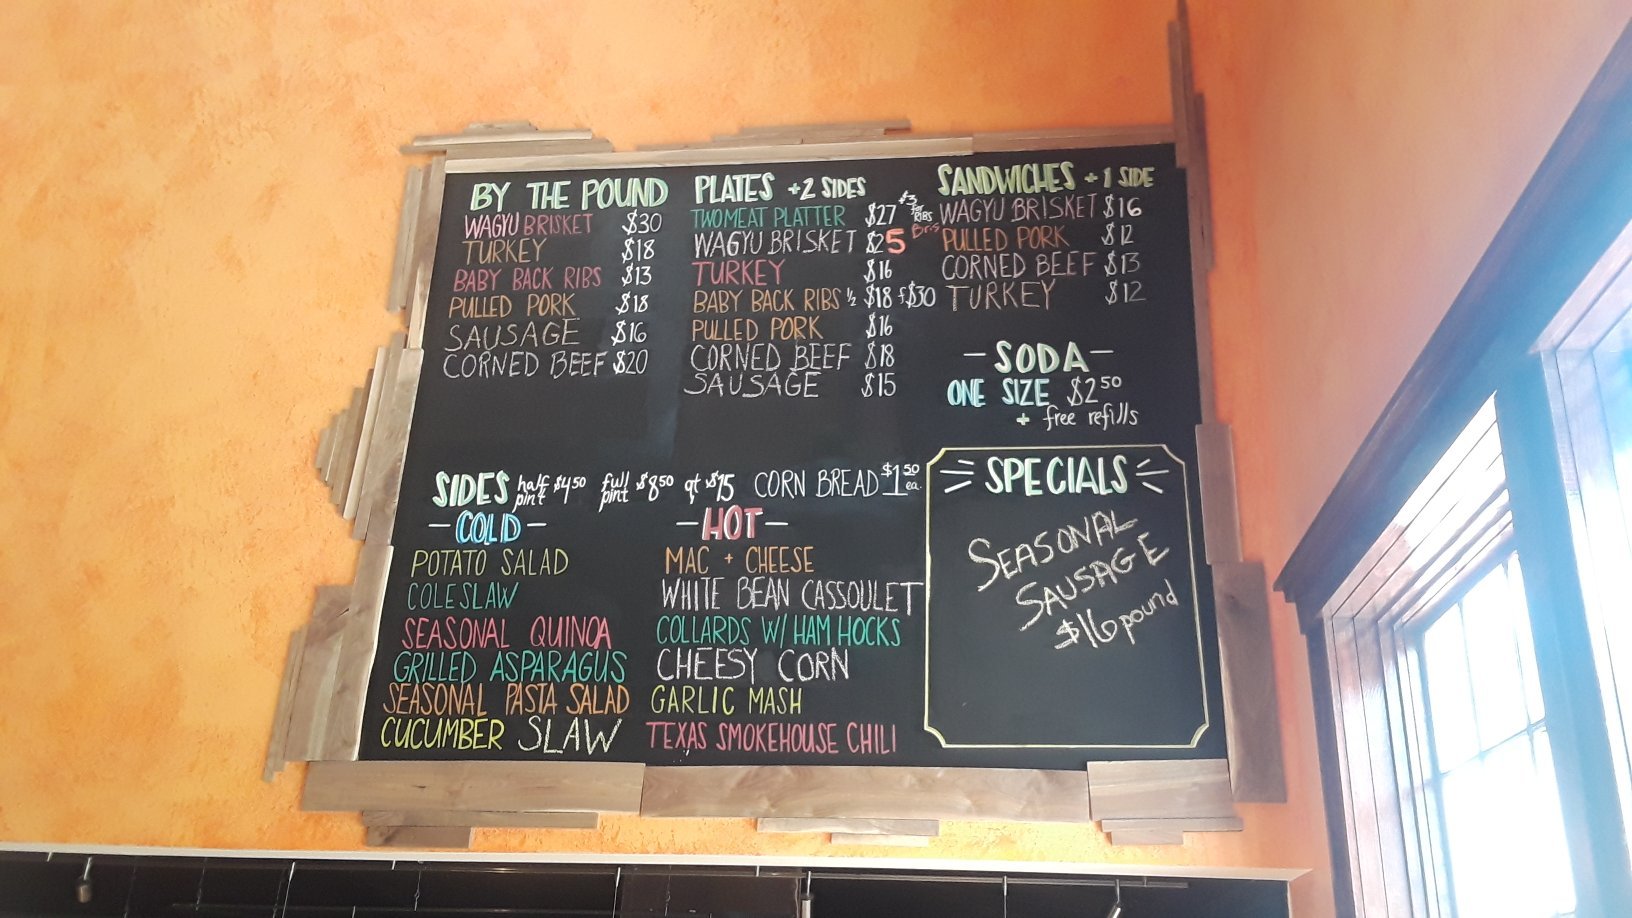 BY THE POUND
WAGYU BRISKET $30
TURKEY $18
BABY BACK RIBS $13
PULLED PORK $18
SAUSAGE $16
CORNED BEEF $20
PLATES +2 SIDES
TWO MEAT PLATTER $27 $3 for RIBS
WAGYU BRISKET $25 Bris
TURKEY $16
BABY BACK RIBS ½ $18 f $30
PULLED PORK $16
CORNED BEEF $18
SAUSAGE $15
SANDWICHES +1 SIDE
WAGYU BRISKET $16
PULLED PORK $12
CORNED BEEF $13
TURKEY $12
-SODA-
ONE SIZE $2.50
+ free refills
SIDES half pint $4.50 full pint $8.50 qt $15 CORN BREAD $1.50 ea.
-COLD-
POTATO SALAD
COLESLAW
SEASONAL QUINOA
GRILLED ASPARAGUS
SEASONAL PASTA SALAD
CUCUMBER SLAW
-HOT-
MAC + CHEESE
WHITE BEAN CASSOULET
COLLARDS W/ HAM HOCKS
CHEESY CORN
GARLIC MASH
TEXAS SMOKEHOUSE CHILI
SPECIALS
SEASONAL
SAUSAGE
$16 pound